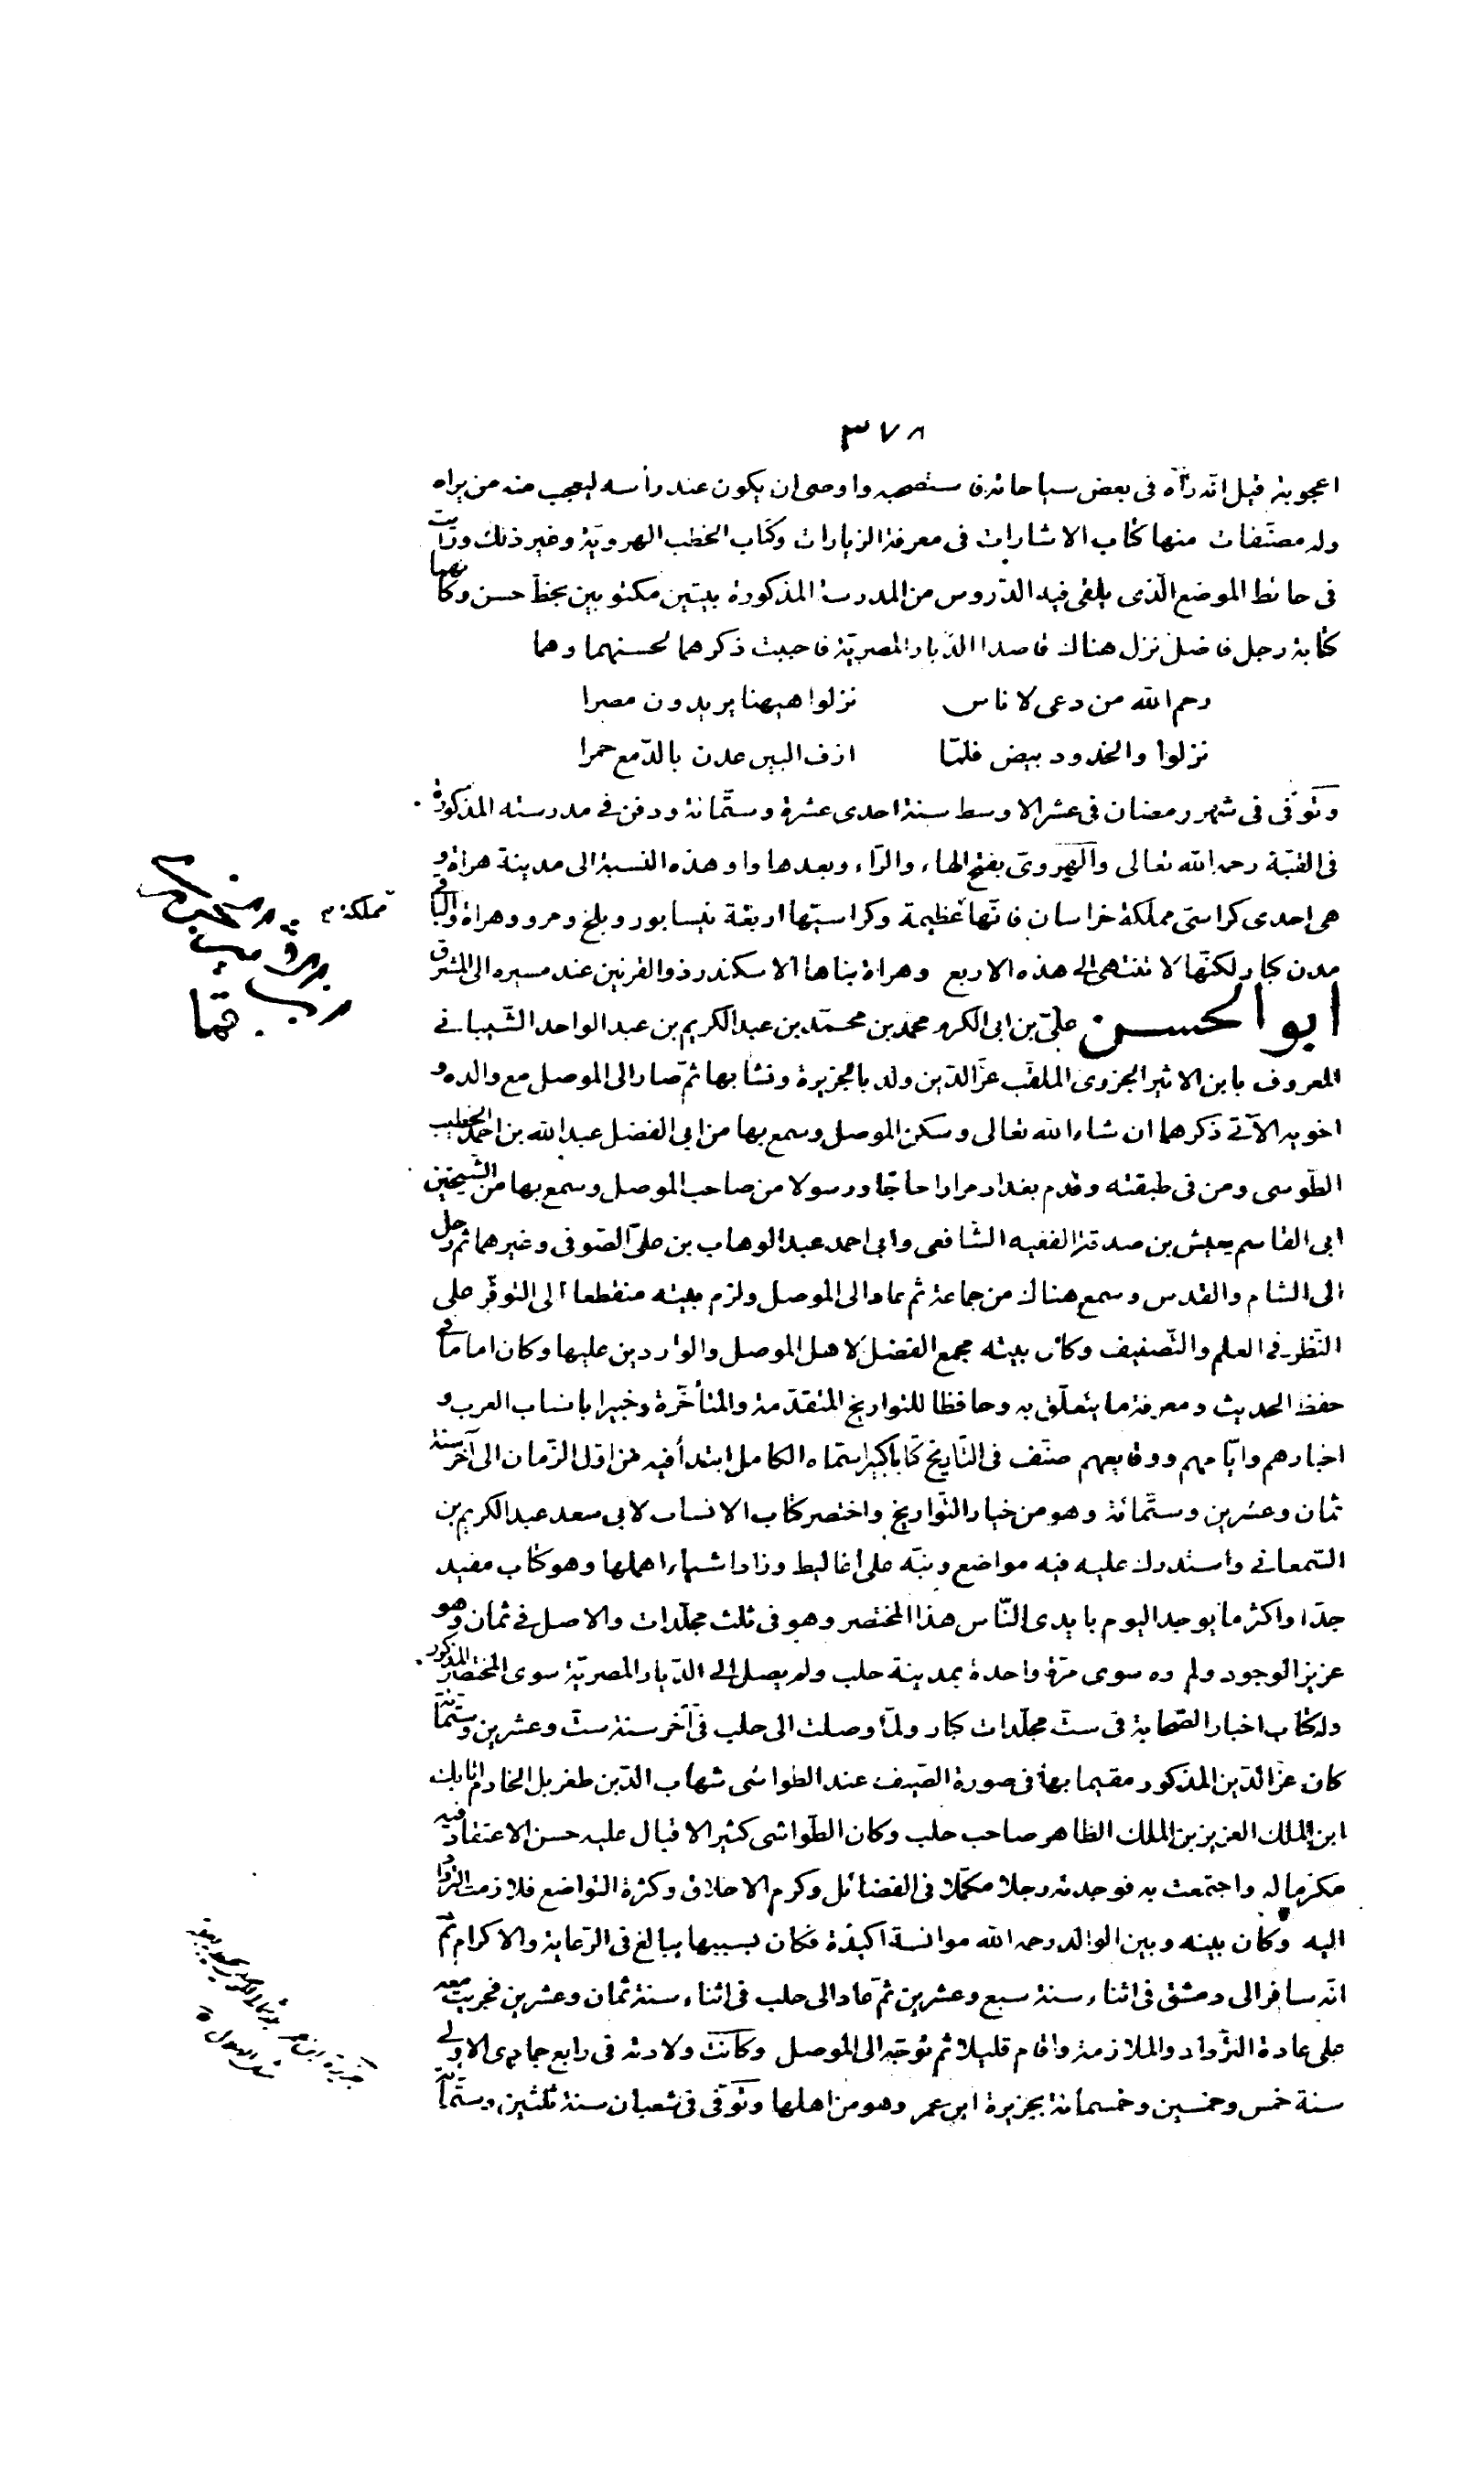 ٣٧٨
اعجوبة قيل انّه رآه فى بعض سياحاته فاستصحبه واوصى ان يكون عند رأسه ليعجب منه من يراه
وله مصنّفات منها كتاب الاشارات فى معرفة الزيارات وكتاب الخطب الهرويّة وغير ذلك ورأيت
فى حائط الموضع الّذى يلقى فيه الدّروس من المدرسة المذكورة بيتين مكتوبين بخطّ حسن وكأنهما
كتابة رجل فاضل نزل هناك قاصدا الدّيار المصريّة فاحببت ذكرهما لحسنهما وهما
رحم الله من دعى لاناس نزلوا هيهنا يريدون مصرا
نزلوا والخدود بيض فلمّا ازف البين عدن بالدّمع حمرا
وتوفّى فى شهر رمضان فى عشر الاوسط سنة احدى عشرة وستّمائة ودفن فى مدرسته المذكورة
فى القبّة رحمه الله تعالى والهروىّ بفتح الهاء والرّاء وبعدها واو هذه النسبة الى مدينة هراة و
هى احدى كراسىّ مملكة خراسان فانّها عظيمة وكراسيّها اربعة نيسابور وبلخ ومرو وهراة والباقى
مدن كبار لكنّها لا تنتهى الى هذه الاربع وهراة بناها الاسكندر ذو القرنين عند مسيره الى المشرق
مملكة
ابو الحسن علىّ بن ابى الكرم محمد بن محمّد بن عبد الكريم بن عبد الواحد الشّيبانى
المعروف بابن الاثير الجزرى الملقّب عزّ الدّين ولد بالجزيرة ونشأ بها ثمّ صار الى الموصل مع والده و
اخويه الآتى ذكرهما ان شاء الله تعالى وسكن الموصل وسمع بها من ابى الفضل عبد الله بن احمد الخطيب
الطّوسى ومن فى طبقته وقدم بغداد مرارا حاجّا ورسولا من صاحب الموصل وسمع بها من الشّيخين
ابى القاسم يعيش بن صدقة الفقيه الشّافعى وابى احمد عبد الوهاب بن علىّ الصّوفى وغيرهما ثم رحل
الى الشام والقدس وسمع هناك من جماعة ثم عاد الى الموصل ولزم بيته منقطعا الى التوفّر على
النّظر فى العلم والتّصنيف وكان بيته مجمع الفضل لاهل الموصل والواردين عليها وكان اماما فى
حفظ الحديث ومعرفة ما يتعلّق به وحافظا للتواريخ المتقدّمة والمتأخّرة وخبيرا بانساب العرب و
اخبارهم وايّامهم ووقايعهم صنّف فى التّاريخ كتابا كبيرا سمّاه الكامل ابتدأ فيه من اوّل الزّمان الى آخر سنة
ثمان وعشرين وستّمائة وهو من خيار التّواريخ واختصر كتاب الانساب لابى سعد عبد الكريم بن
السّمعانى واستدرك عليه فيه مواضع ونبّه على اغاليط وزاد اشياء اهملها وهو كتاب مفيد
جدّا واكثر ما يوجد اليوم بايدى النّاس هذا المختصر وهو فى ثلث مجلّدات والاصل فى ثمان وهو
عزيز الوجود ولم ره سوى مرّة واحدة بمدينة حلب ولم يصل الى الدّيار المصريّة سوى المختصر المذكور
وله كتاب اخبار الصّحابة فى ستّ مجلّدات كبار ولمّا وصلت الى حلب فى آخر سنة ستّ وعشرين وستّمائة
كان عزّ الدّين المذكور مقيما بها فى صورة الضّيف عند الطواشى شهاب الدّين طغريل الخادم اتابك
ابن الملك العزيز بن الملك الظاهر صاحب حلب وكان الطّواشى كثير الاقبال عليه حسن الاعتقاد فيه
مكرما له واجتمعت به فوجدته رجلا مكمّلا فى الفضائل وكرم الاخلاق وكثرة التواضع فلازمت التّرداد
اليه وكان بينه وبين الوالد رحمه الله موانسة اكيدة فكان بسببها يبالغ فى الرّعاية والاكرام ثمّ
انّه سافر الى دمشق فى اثناء سنة سبع وعشرين ثمّ عاد الى حلب فى اثناء سنة ثمان وعشرين فجريت معه
على عادة التّرداد والملازمة واقام قليلا ثم توجّه الى الموصل وكانت ولادته فى رابع جمادى الاولى
سنة خمس وخمسين وخمسمائة بجزيرة ابن عمر وهو من اهلها وتوفّى فى شعبان سنة ثلثين وستّمائة
جزيرة ابن عمر